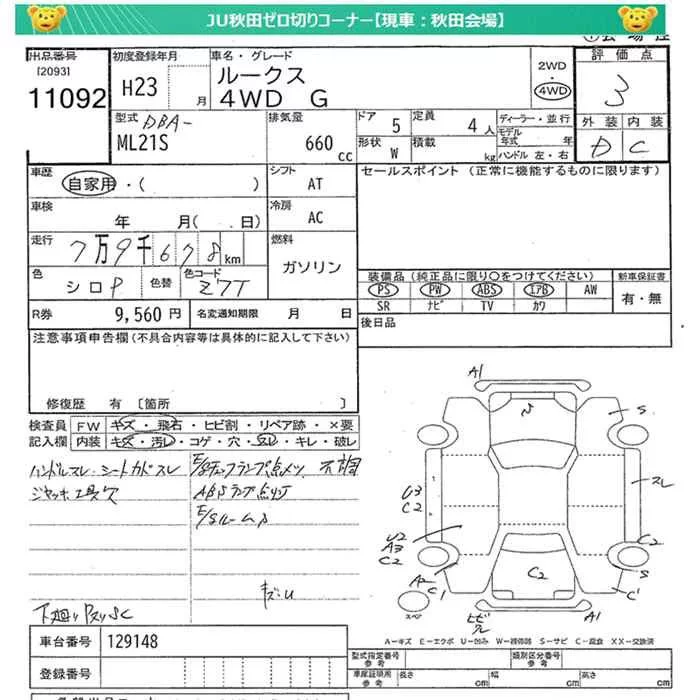 JU秋田ゼロ切りコーナー【現車：秋田会場】
出品番号
[2093]
11092
初度登録年月
H23 月
車名・グレード
ルークス
4WD G
2WD
4WD
評価点
3
外装 内装
D C
型式
DBA-
ML21S
排気量
660 cc
ドア 5
定員 4人
形状 W
積載 kg
ディーラー・並行
モデル年式 年
ハンドル 左・右
車歴
自家用・( )
シフト
AT
車検
年 月( . 日)
冷房
AC
走行
7万9千678km
燃料
ガソリン
色
シロP
色替
色コード
Z7T
R券 9,560円
名変通知期限 月 日
セールスポイント (正常に機能するものに限ります)
装備品(純正品に限り○をつけてください)
PS PW ABS エアB AW
SR ナビ TV カワ
新車保証書
有・無
後日品
注意事項申告欄(不具合内容等は具体的に記入して下さい)
修復歴 有 [箇所 ]
検査員記入欄
FW キズ・飛石・ヒビ割・リペア跡・×要
内装 キズ・汚レ・コゲ・穴・スレ・キレ・破レ
ハンドルスレ・シートカドスレ
ジャッキ工具欠
E/gチェックランプ点メツ、不調
ABSランプ点灯
キズ・U
A1
S
スレ
U3
C2
U2
A3
C2
A2
C1
C2
C2
S
C1
スペア
A1
車台番号 129148
登録番号
A−キズ E−エクボ U−凹み W−補修跡 S−サビ C−腐食 XX−交換済
型式指定番号
参考
類別区分番号
参考
車庫証明項目
参考
長さ cm
幅 cm
高さ cm